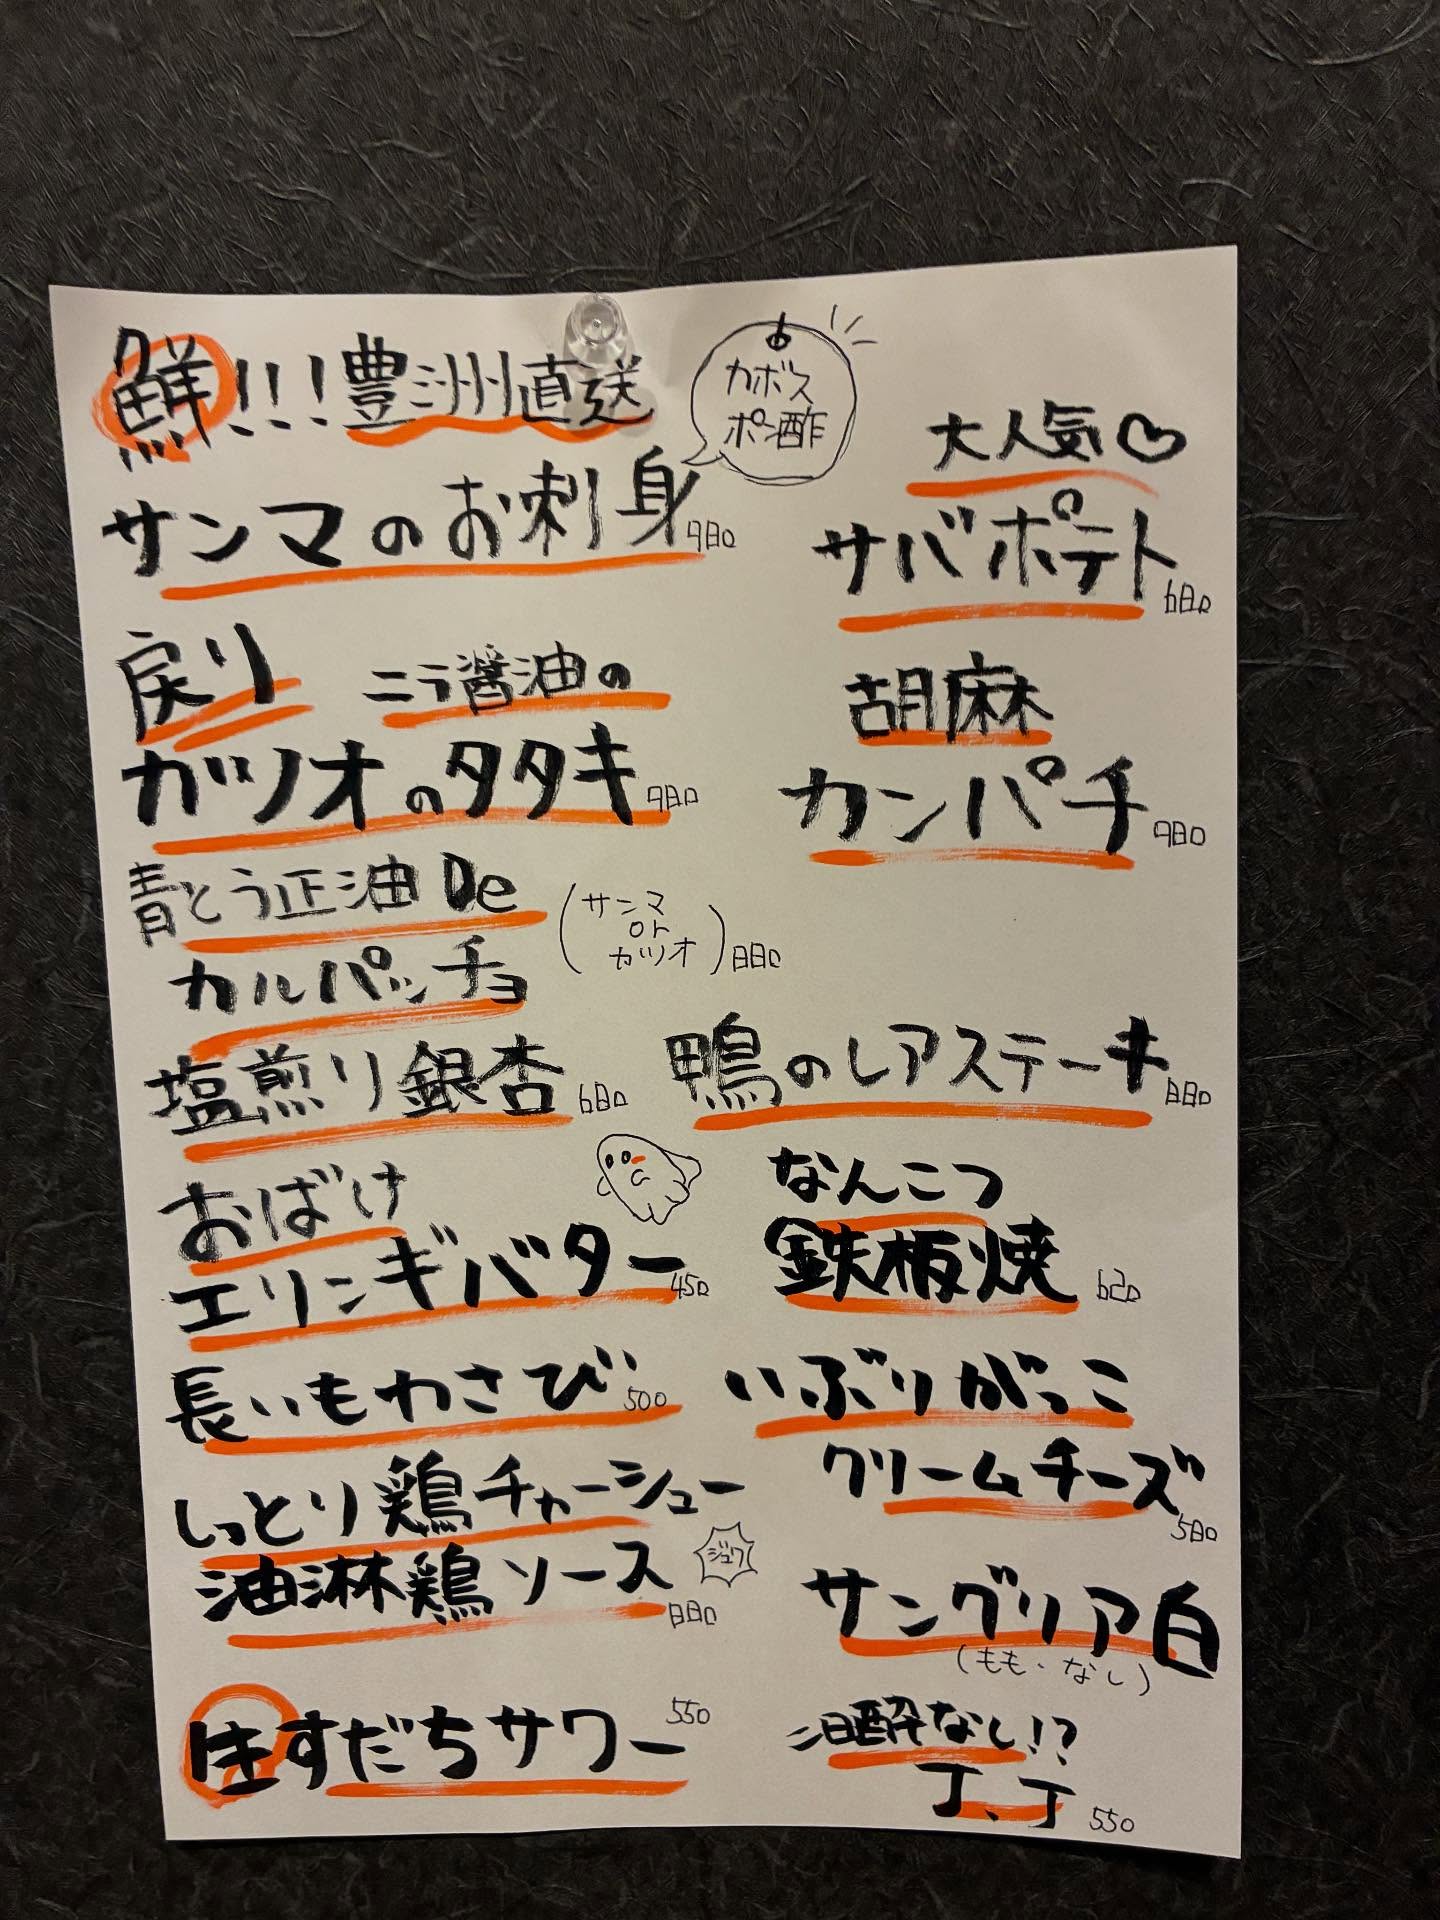 鮮!!!豊洲直送
カボス
ポン酢
サンマのお刺身 980
大人気♡
サバポテト 680
戻り ニラ醤油の
カツオのタタキ 980
胡麻
カンパチ 980
青とう正油De
カルパッチョ
(サンマ
or
カツオ) 880
塩煎り銀杏 680
鴨のレアステーキ 880
おばけ
エリンギバター 450
なんこつ
鉄板焼 620
長いもわさび 500
いぶりがっこ
クリームチーズ 580
しっとり鶏チャーシュー
油淋鶏ソース 880
ジュワ
サングリア白
(もも・なし)
生すだちサワー 550
二日酔なし!?
J.J 550